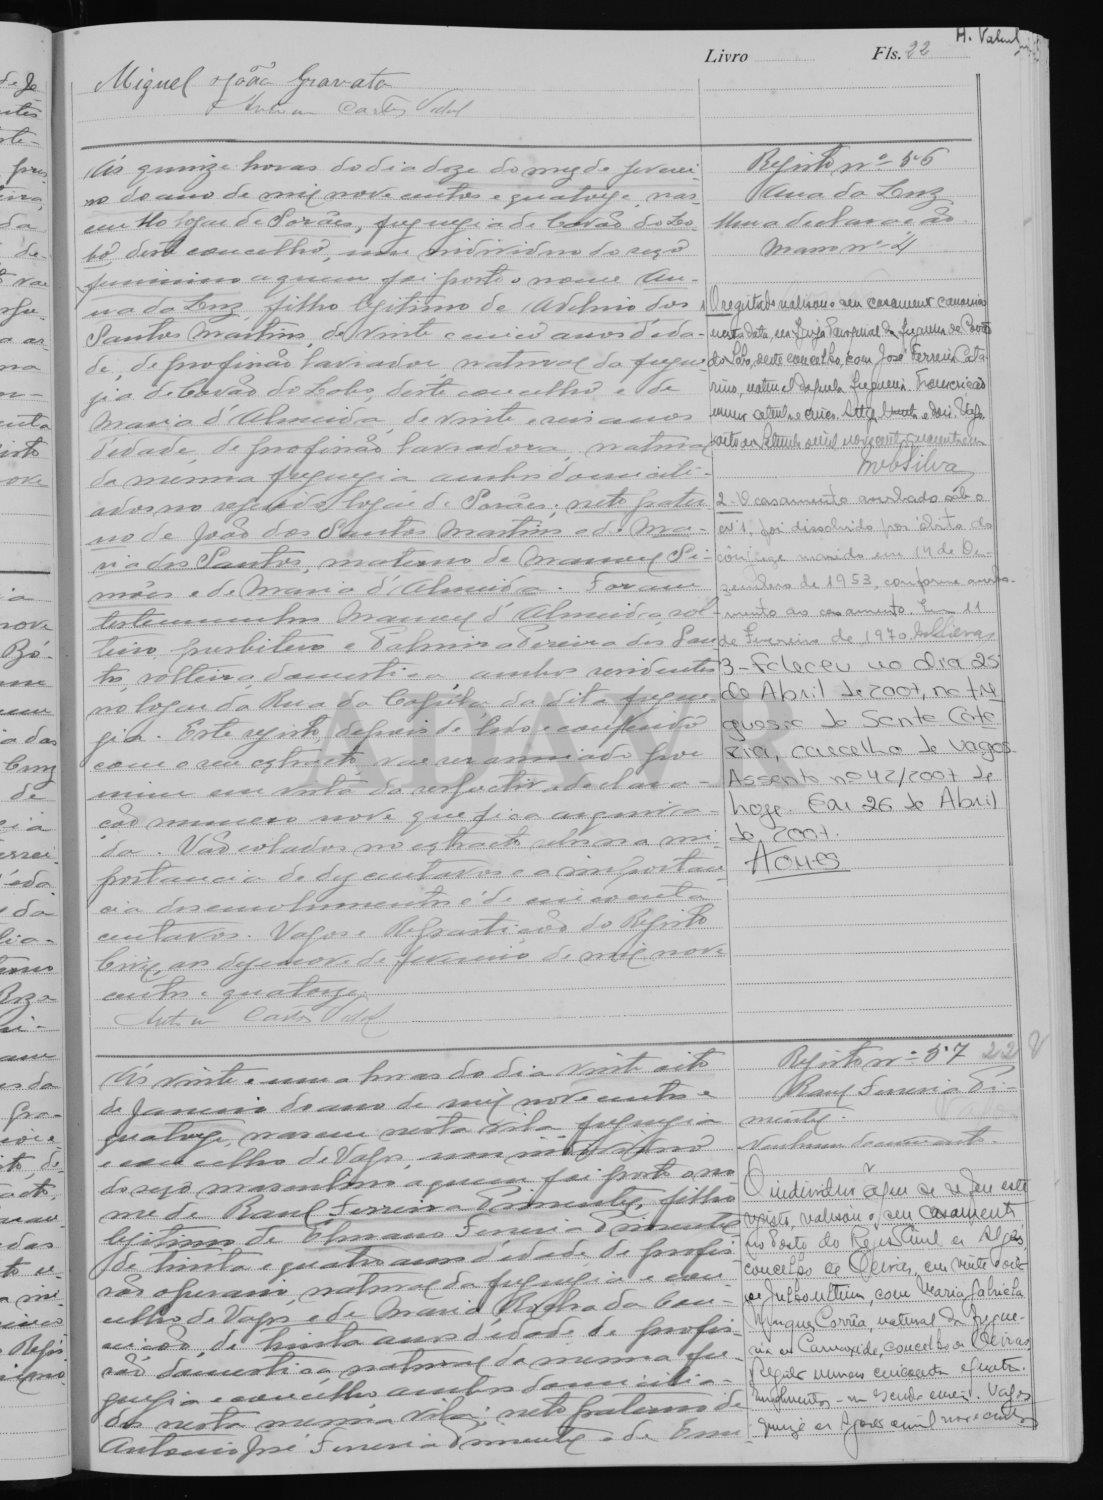 H. Valent
Livro Fls. 22
Miguel João Gravato
Artur Carlos Vidal
Ás quinze horas do dia doze do mez de feverei-
ro do ano de mil nove centos e quatorze, nas-
ceu no logar de Parães, freguezia de Covão do Lo-
bo, deste concelho, um individuo do sexo
feminino a quem foi posto o nome An-
na da Luz, filho legitimo de Adelino dos
Santos Martins, de vinte e cinco anos d'ida-
de, de profissão lavrador, natural da fregue
zia de Covão do Lobo, deste concelho e de
Maria d'Almeida, de vinte e seis anos
d'edade, de profissão lavradora, natural
da mesma freguezia ambos domicili-
ados no referido logar de Parães; neto pater
no de João dos Santos Martins e de Ma-
ria dos Santos, materno de Manuel Si-
mões e de Maria d'Almeida. Foram
testemunhas Manuel d'Almeida, sol
teiro, presbitero e Palmira Pereira dos San
tos, solteira, domestica, ambos residentes
no logar da Rua da Capela da dita fregue
zia. Este registo, depois de lido e conferido
com o seu extracto, vae ser assinado por
mim em vista da respectiva declara-
ção numero nove que fica arquiva-
da. Vão colados no extracto selos na im
portancia de dez centavos e a importan
cia dos emolumentos é de cincoenta
centavos. Vagos e Repartição do Registo
Civil, aos dezenove de fevereiro de mil nove
centos e quatorze.
Artur Carlos Vidal
Registo nº 56
Ana da Luz
Uma declaração
Maço nº 4
O registado realisou o seu casamento canonico
nesta data, na Igreja Paroquial da freguesia de Covão
do Lobo, deste concelho, com José Ferreira Cata-
rino, natural daquela freguesia. Transcrição
2 - O casamento averbado sob o
nº 1, foi dissolvido por óbito do
cônjuge marido em 14 de De-
zembro de 1953, conforme averba-
mento ao casamento. Em 11
de Fevereiro de 1970.
3 - Faleceu no dia 25
de Abril de 2007, na fre
guesia de Santa Cata
rina, concelho de Vagos
Assento nº 42/2007 de
hoje. Em 26 de Abril
de 2007.
Ás vinte e uma horas do dia vinte oito
de Janeiro do ano de mil nove centos e
quatorze, nasceu nesta vila, freguezia
e concelho de Vagos, um individuo
do sexo masculino a quem foi posto o no-
me de Raul Ferreira Pimentel, filho
legitimo de Elmano Ferreira Pimentel
de trinta e quatro anos d'edade, de profis-
são operario, natural da freguezia e con-
celho de Vagos e de Maria Rocha da Con-
ceição, de trinta anos d'edade, de profis-
são domestica, natural da mesma fre-
guezia e concelho ambos domicilia-
dos nesta mesma vila; neto paterno de
Antonio José Ferreira Pimentel e de
Registo nº 57 22 v
Raul Ferreira Pi-
mentel.
Nenhum documento.
O individuo a que se refere este
registo, realisou o seu casamento
no Posto do Registo Civil de Algés,
concelho de Oeiras, em vinte e oito
de Julho ultimo, com Maria Gabriela
Corrêa, natural da fregue-
sia de Carnaxide, concelho de Oeiras
Registo numero cincoenta e quatro.
Vagos
quinze de Agosto de mil nove centos
ADAVR